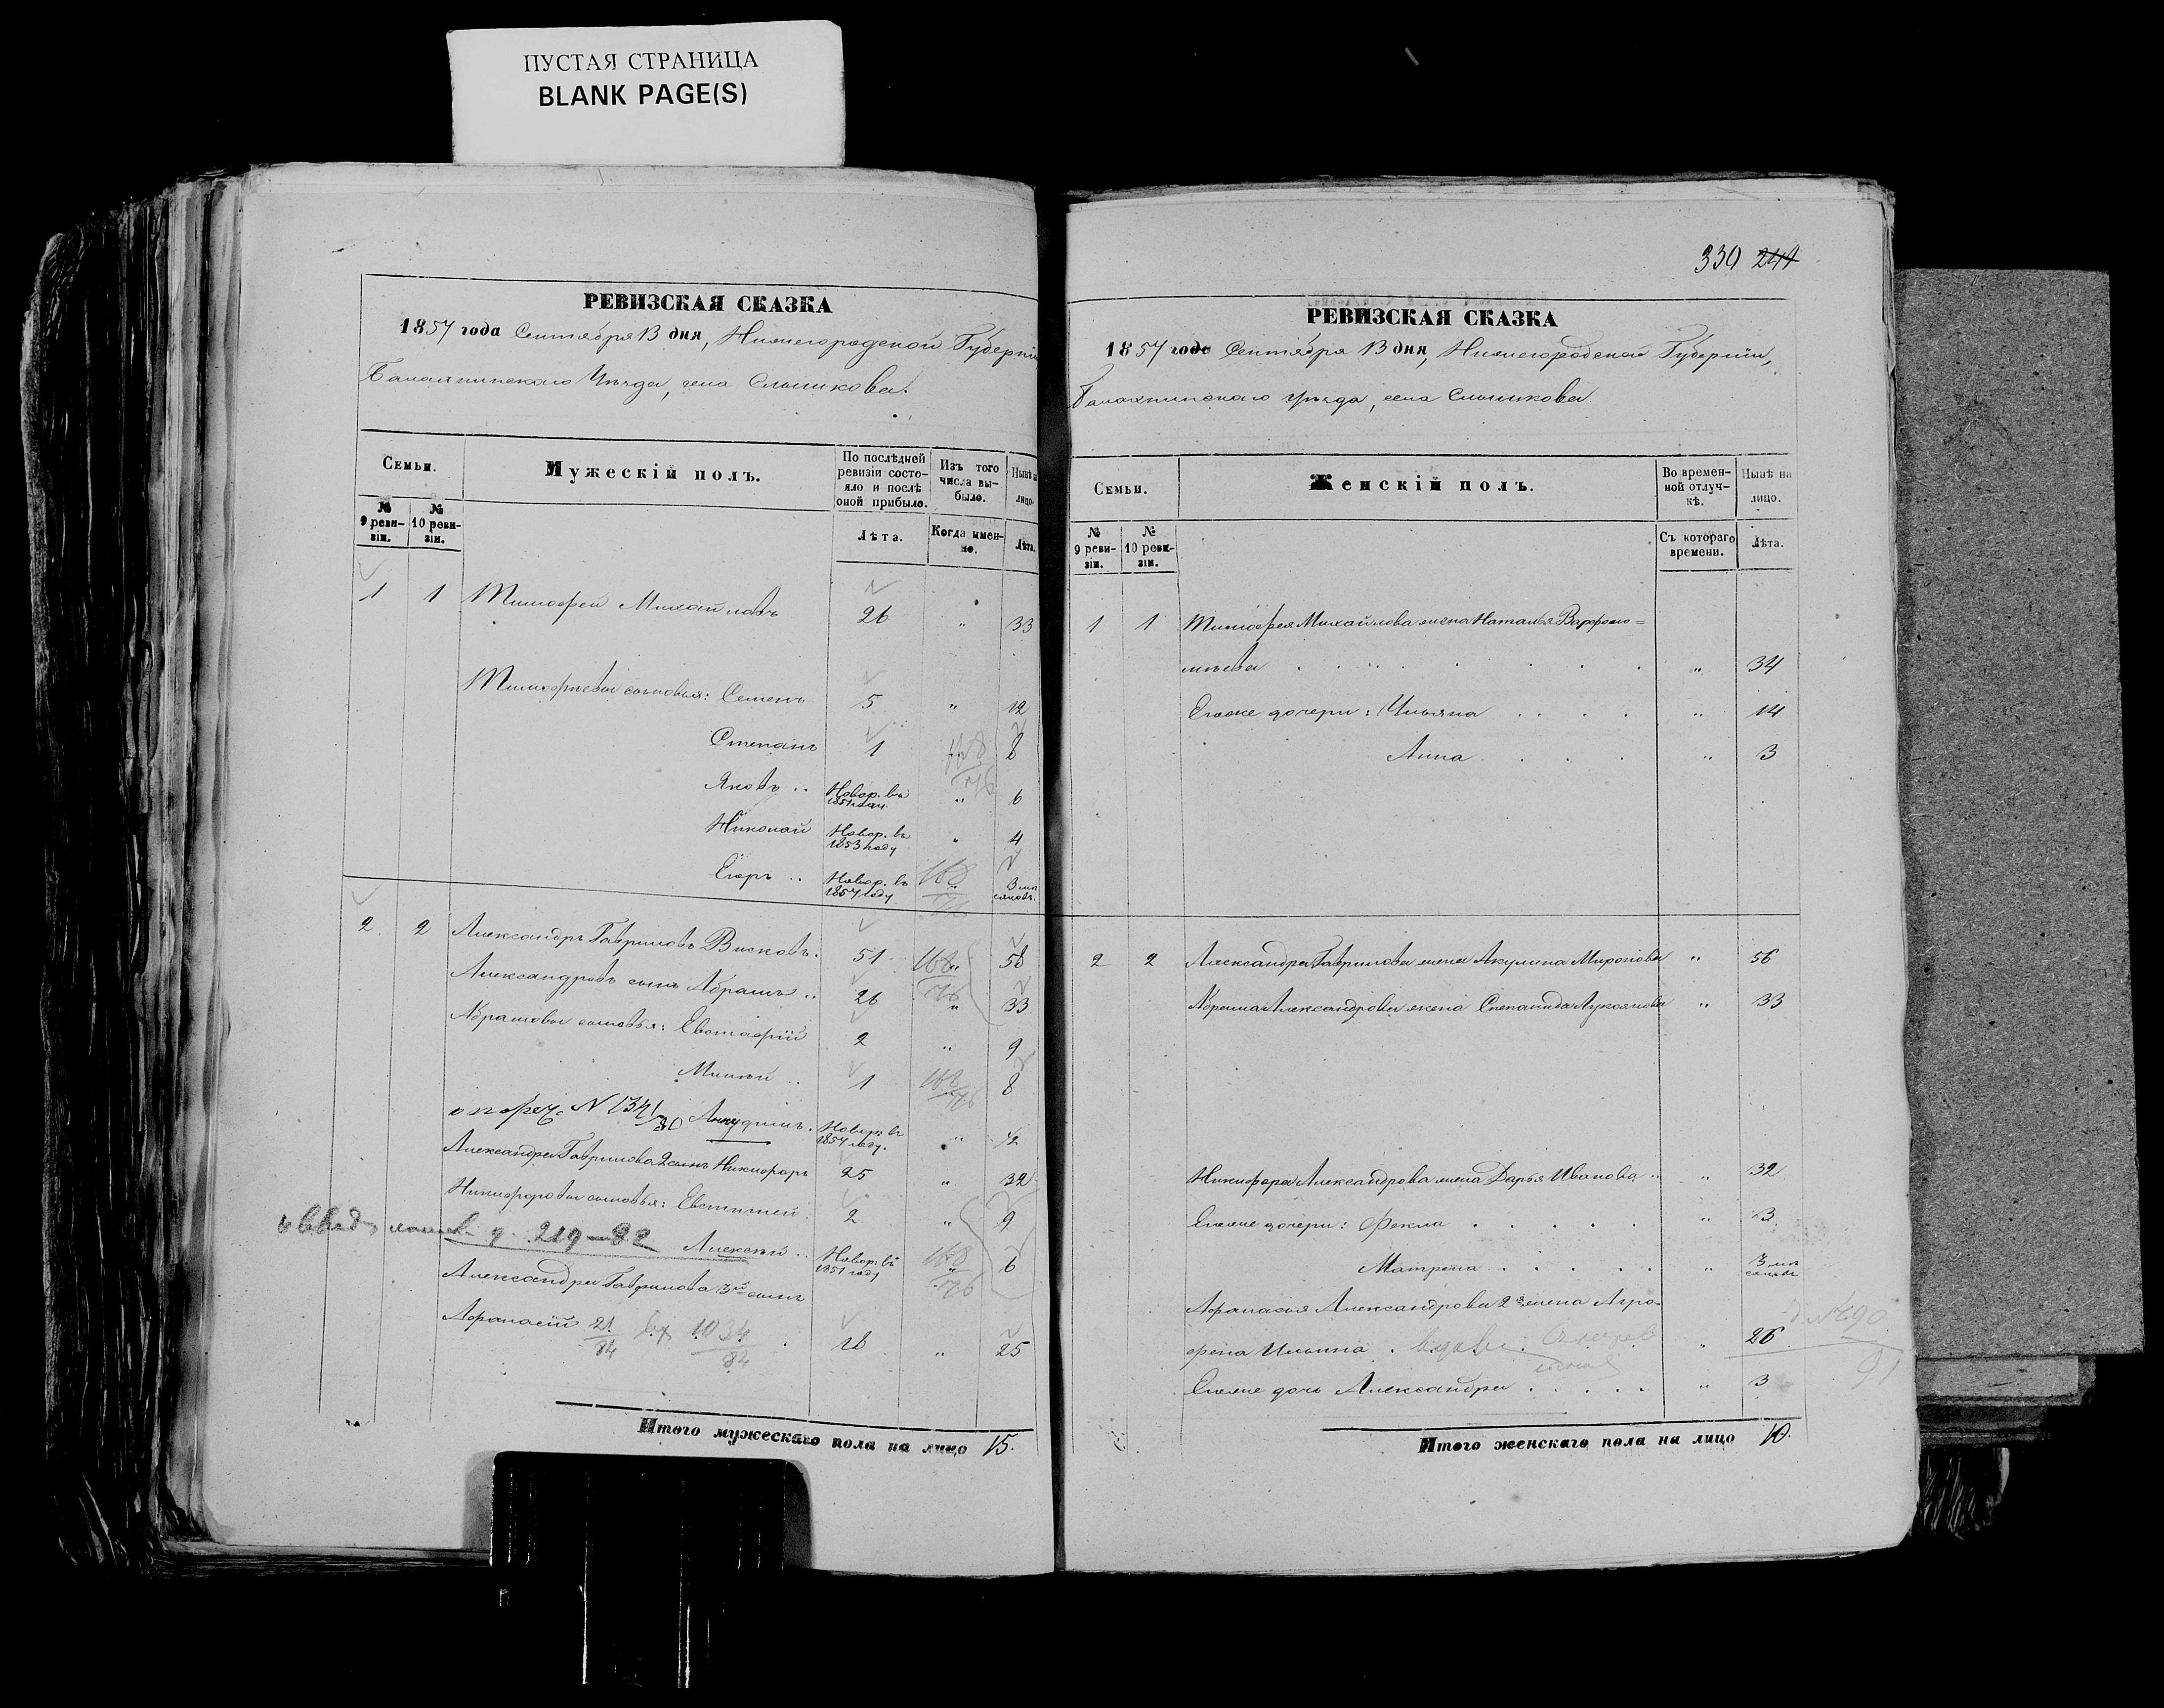 ПУСТАЯ СТРАНИЦА
BLANK PAGE(S)
РЕВИЗСКАЯ СКАЗКА
1857 года Сентября 13 дня, Нижегородской Губерніи
Балахнинскаго Уѣзда, села
Семьи.
Мужескій полъ.
По послѣдней ревизіи состояло и послѣ оной прибыло.
Изъ того числа выбыло.
Нынѣ на лицо.
№ 9 ревизіи.
№ 10 ревизіи.
Лѣта.
Когда именно.
Лѣта.
1 1 Тимофей Михайловъ 26 " 33
Тимофѣевы сыновья: Семенъ 5 " 12
Степанъ 1 8
Яковъ .. Новор. въ 1851 году " 6
Николай Новор. въ 1853 году " 4
Егоръ .. Новор. въ 1857 году 3 мѣсяцовъ.
2 2 Александръ Гавриловъ Висковъ. 51 168 58
Александровъ сынъ Абрамъ .. 26 " 33
Абрамовы сыновья: Евстафій 2 " 9
Михѣй .. 1 168 8
N 1341/30 Анкудинъ. Новор. въ 1857 году. " 1/2
Александра Гаврилова 2 сынъ Никифоръ 25 " 32
Никифоровы сыновья: Евстигней 2 " 9
219-82 Алексѣй .. Новор. въ 1851 году 168 6
Александра Гаврилова 3й сынъ
Афанасій 21/84 вх 1034/84 . 18 " 25
Итого мужескаго пола на лицо 15.
339 241
РЕВИЗСКАЯ СКАЗКА
1857 года Сентября 13 дня, Нижегородской Губерніи,
Балахнинскаго уѣзда, села
Семьи.
Женскій полъ.
Во временной отлучкѣ.
Нынѣ на лицо.
№ 9 ревизіи.
№ 10 ревизіи.
Съ котораго времени.
Лѣта.
1 1 Тимофея Михайлова жена Наталья Варфоло=
мѣева . . . . " 34
Егоже дочери: Ульяна . . . . " 14
Анна . . . . " 3
2 2 Александра Гаврилова жена Акулина Миронова " 56
Абрама Александрова жена Степанида Лукоянова " 33
Никифора Александрова жена Дарья Иванова .. " 32
Егоже дочери: Фекла . . . . . " 3
Матрена . . . . . " 3 мѣсяцовъ
Афанасья Александрова 2я жена Агра-
фена Ильина . вдова " 26
Егоже дочь Александра . . . . . " 3
Итого женскаго пола на лицо 10.